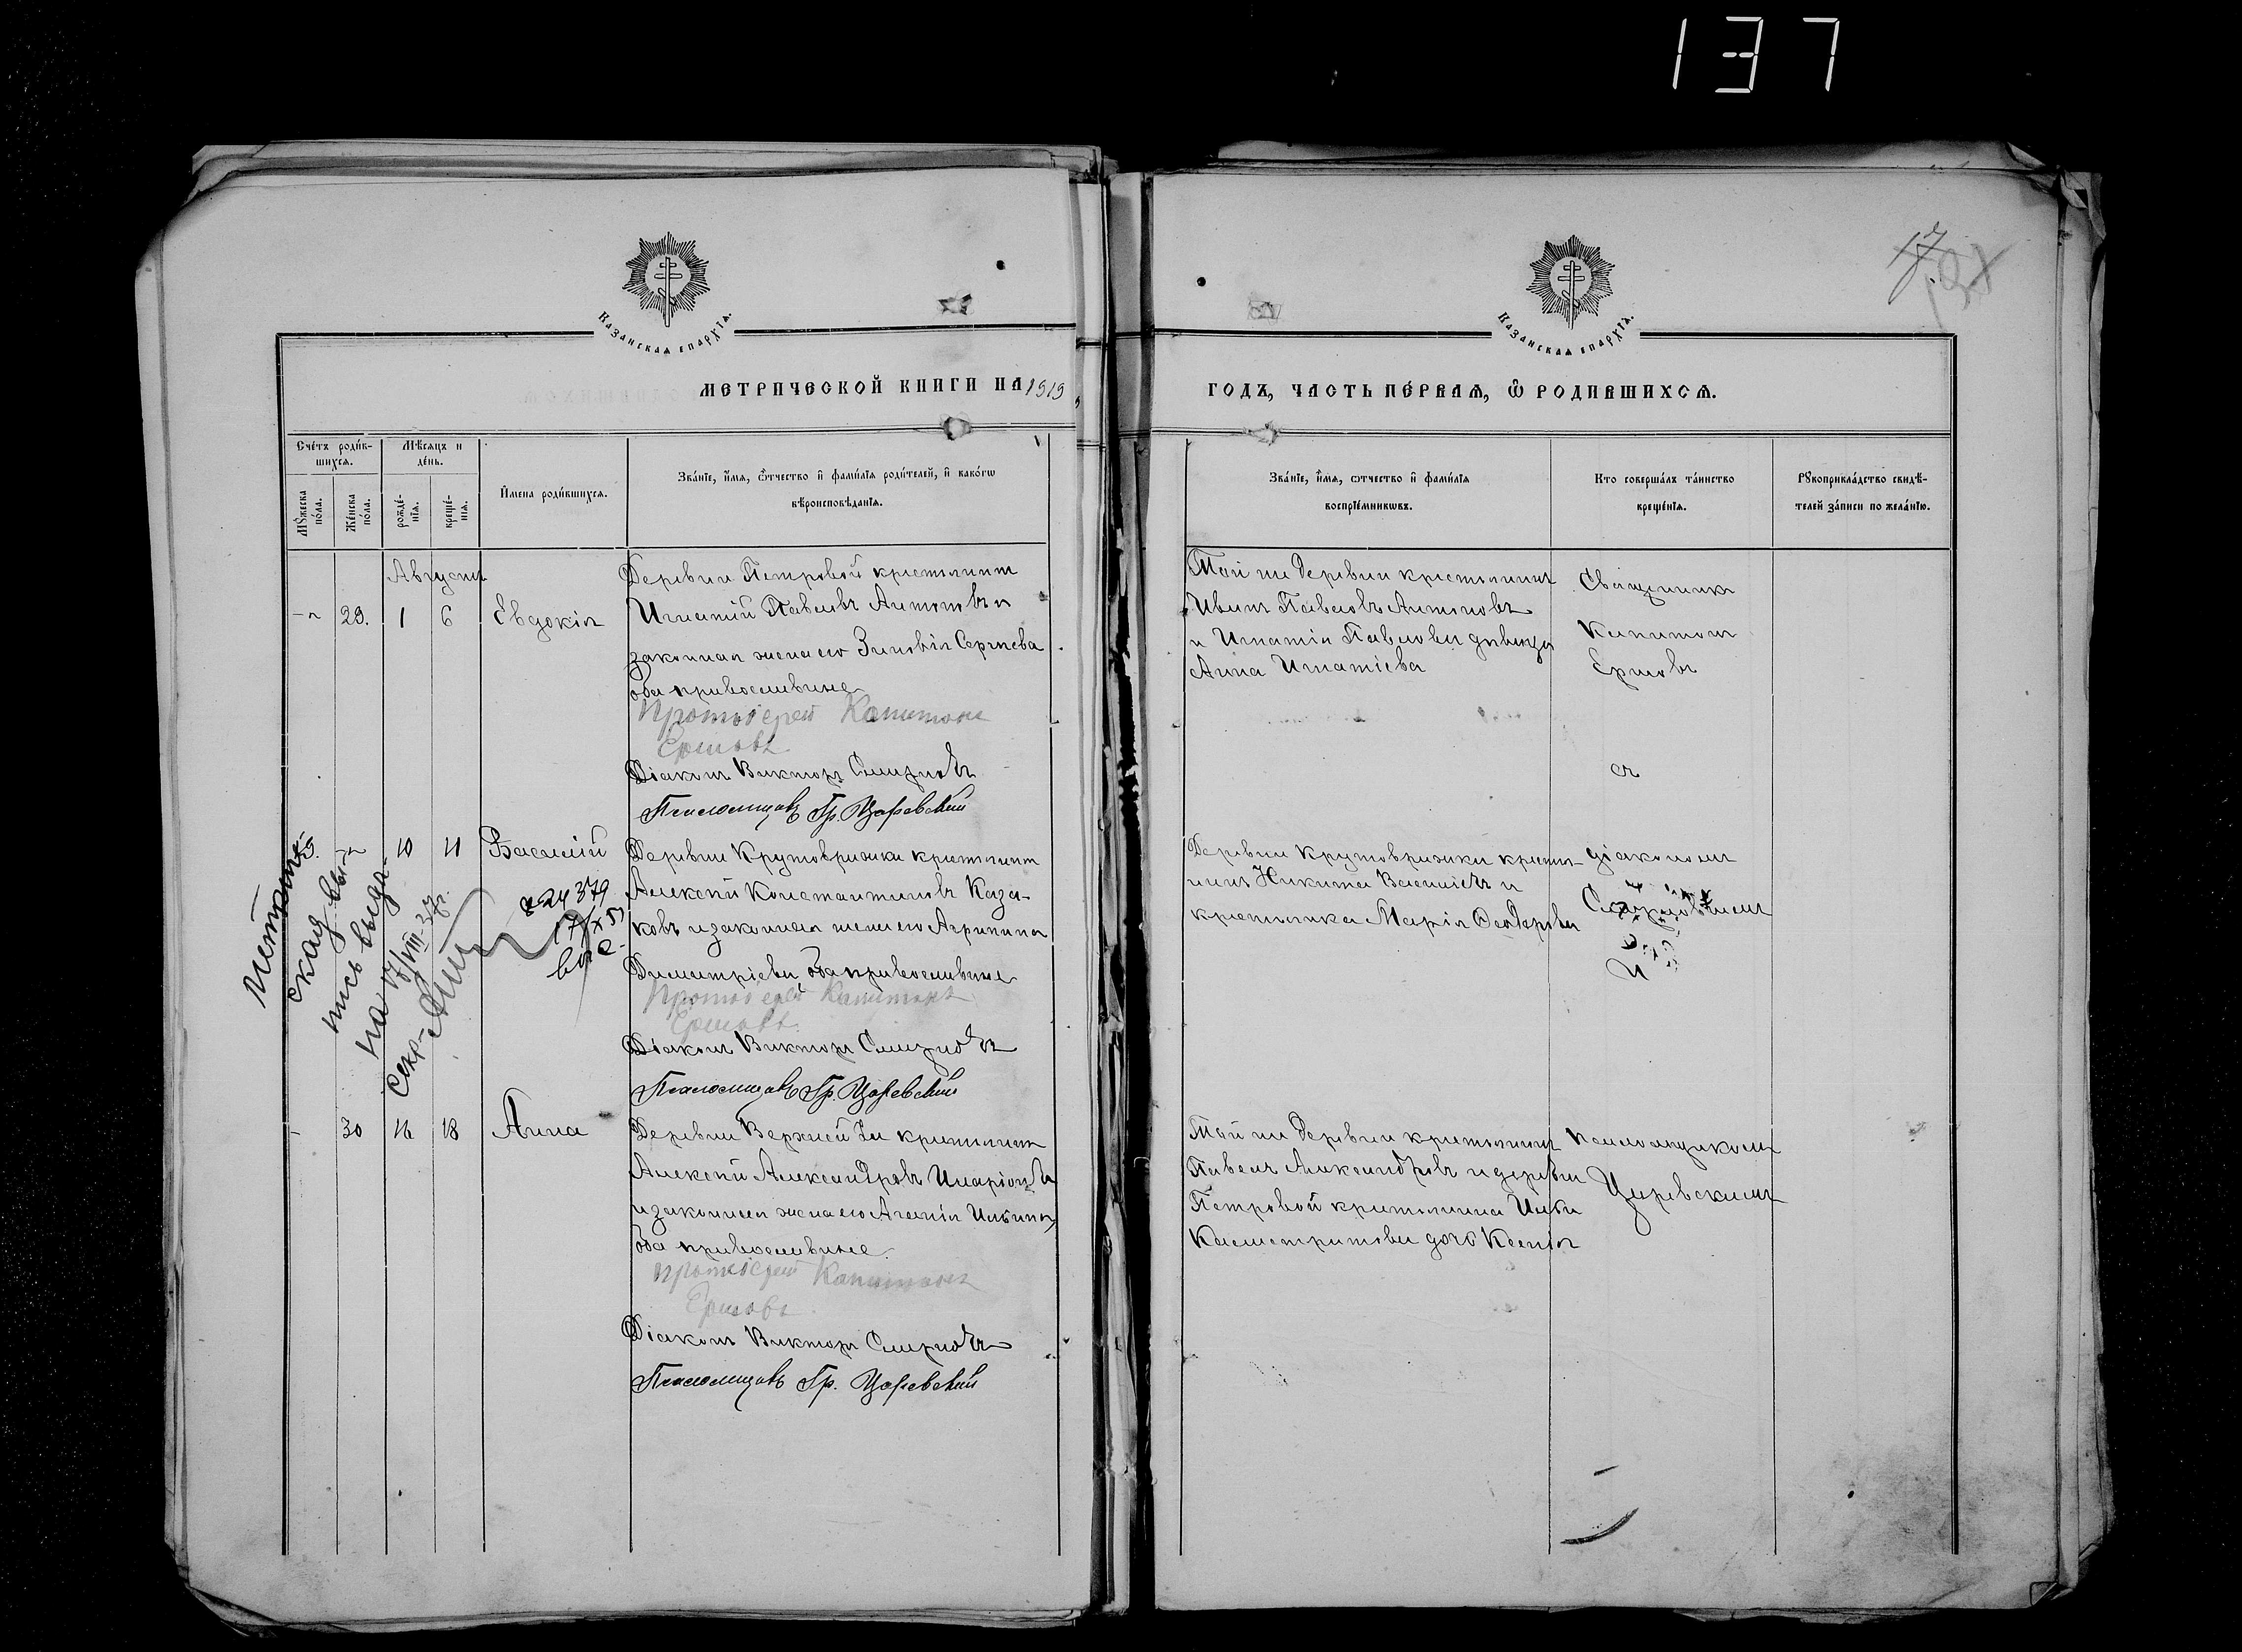 137
17
Казанская епархїѧ.
Казанская епархїѧ.
МЕТРИЧЕСКОЙ КНИГИ НА 1919
ГОДЪ, ЧАСТЬ ПЕ́РВАѦ, Ѽ РОДИВШИХСѦ.
Сче́тъ роди́в-
шихсѧ.
Мѣ́сѧцъ и
де́нь.
Мꙋ́жеска
по́ла.
Же́нска
по́ла.
рожде́-
нїѧ.
креще́-
нїѧ.
И҆мена роди́вшихсѧ.
Зва́нїе, и҆́мѧ, ѻ҆́тчество и҆ фами́лїѧ роди́телей, и҆ како́гѡ
вѣроисповѣ́данїѧ.
Зва́нїе, и҆́мѧ, ѻ҆тчество и҆ фами́лїѧ
воспрїе́мникѡвъ.
Кто соверша́лъ та́инство
креще́нїѧ.
Рꙋкоприкла́дство свидѣ́-
телей за́писи по жела́нїю.
Августъ
29. 1 6 Евдокія
Деревни Петровой крестьянинъ
Игнатій Павловъ Антоновъ и
законная жена его Зиновія Сергѣева
оба православные
Протоіерей Капитонъ
Ершовъ
Діаконъ Викторъ Смирновъ
Псаломщикъ Гр. Царевскій
Той же деревни крестьянинъ
Иванъ Павловъ Антоновъ
и Игнатія Павлова дѣвица
Анна Игнатіева
Священникъ
Капитонъ
Ершовъ
съ
10 11 Василій
Деревни Крутовражки крестьянинъ
Алексѣй Константиновъ Каза-
ковъ и законная жена его Агрипина
Димитріева, оба православные
Протоіерей Капитонъ
Ершовъ
Діаконъ Викторъ Смирновъ
Псаломщикъ Гр. Царевскій
Деревни Крутовражки крестья-
нинъ Никита Васильевъ и
крестьянка Марія Ѳеодорова
діакономъ
Смирновымъ
Метриче-
ская вы-
пись выда-
на 17/VIII-37г.
секр-
24379
30 16 18 Анна
Деревни Верхней крестьянинъ
Алексѣй Александровъ Иларіоновъ
и законная жена его Агапія Ильина,
оба православные.
Протоіерей Капитонъ
Ершовъ.
Діаконъ Викторъ Смирновъ
Псаломщикъ Гр. Царевскій
Той же деревни крестьянинъ
Павелъ Александровъ и деревни
Петровой крестьянина
дочь Ксенія
псаломщикомъ
Царевскимъ